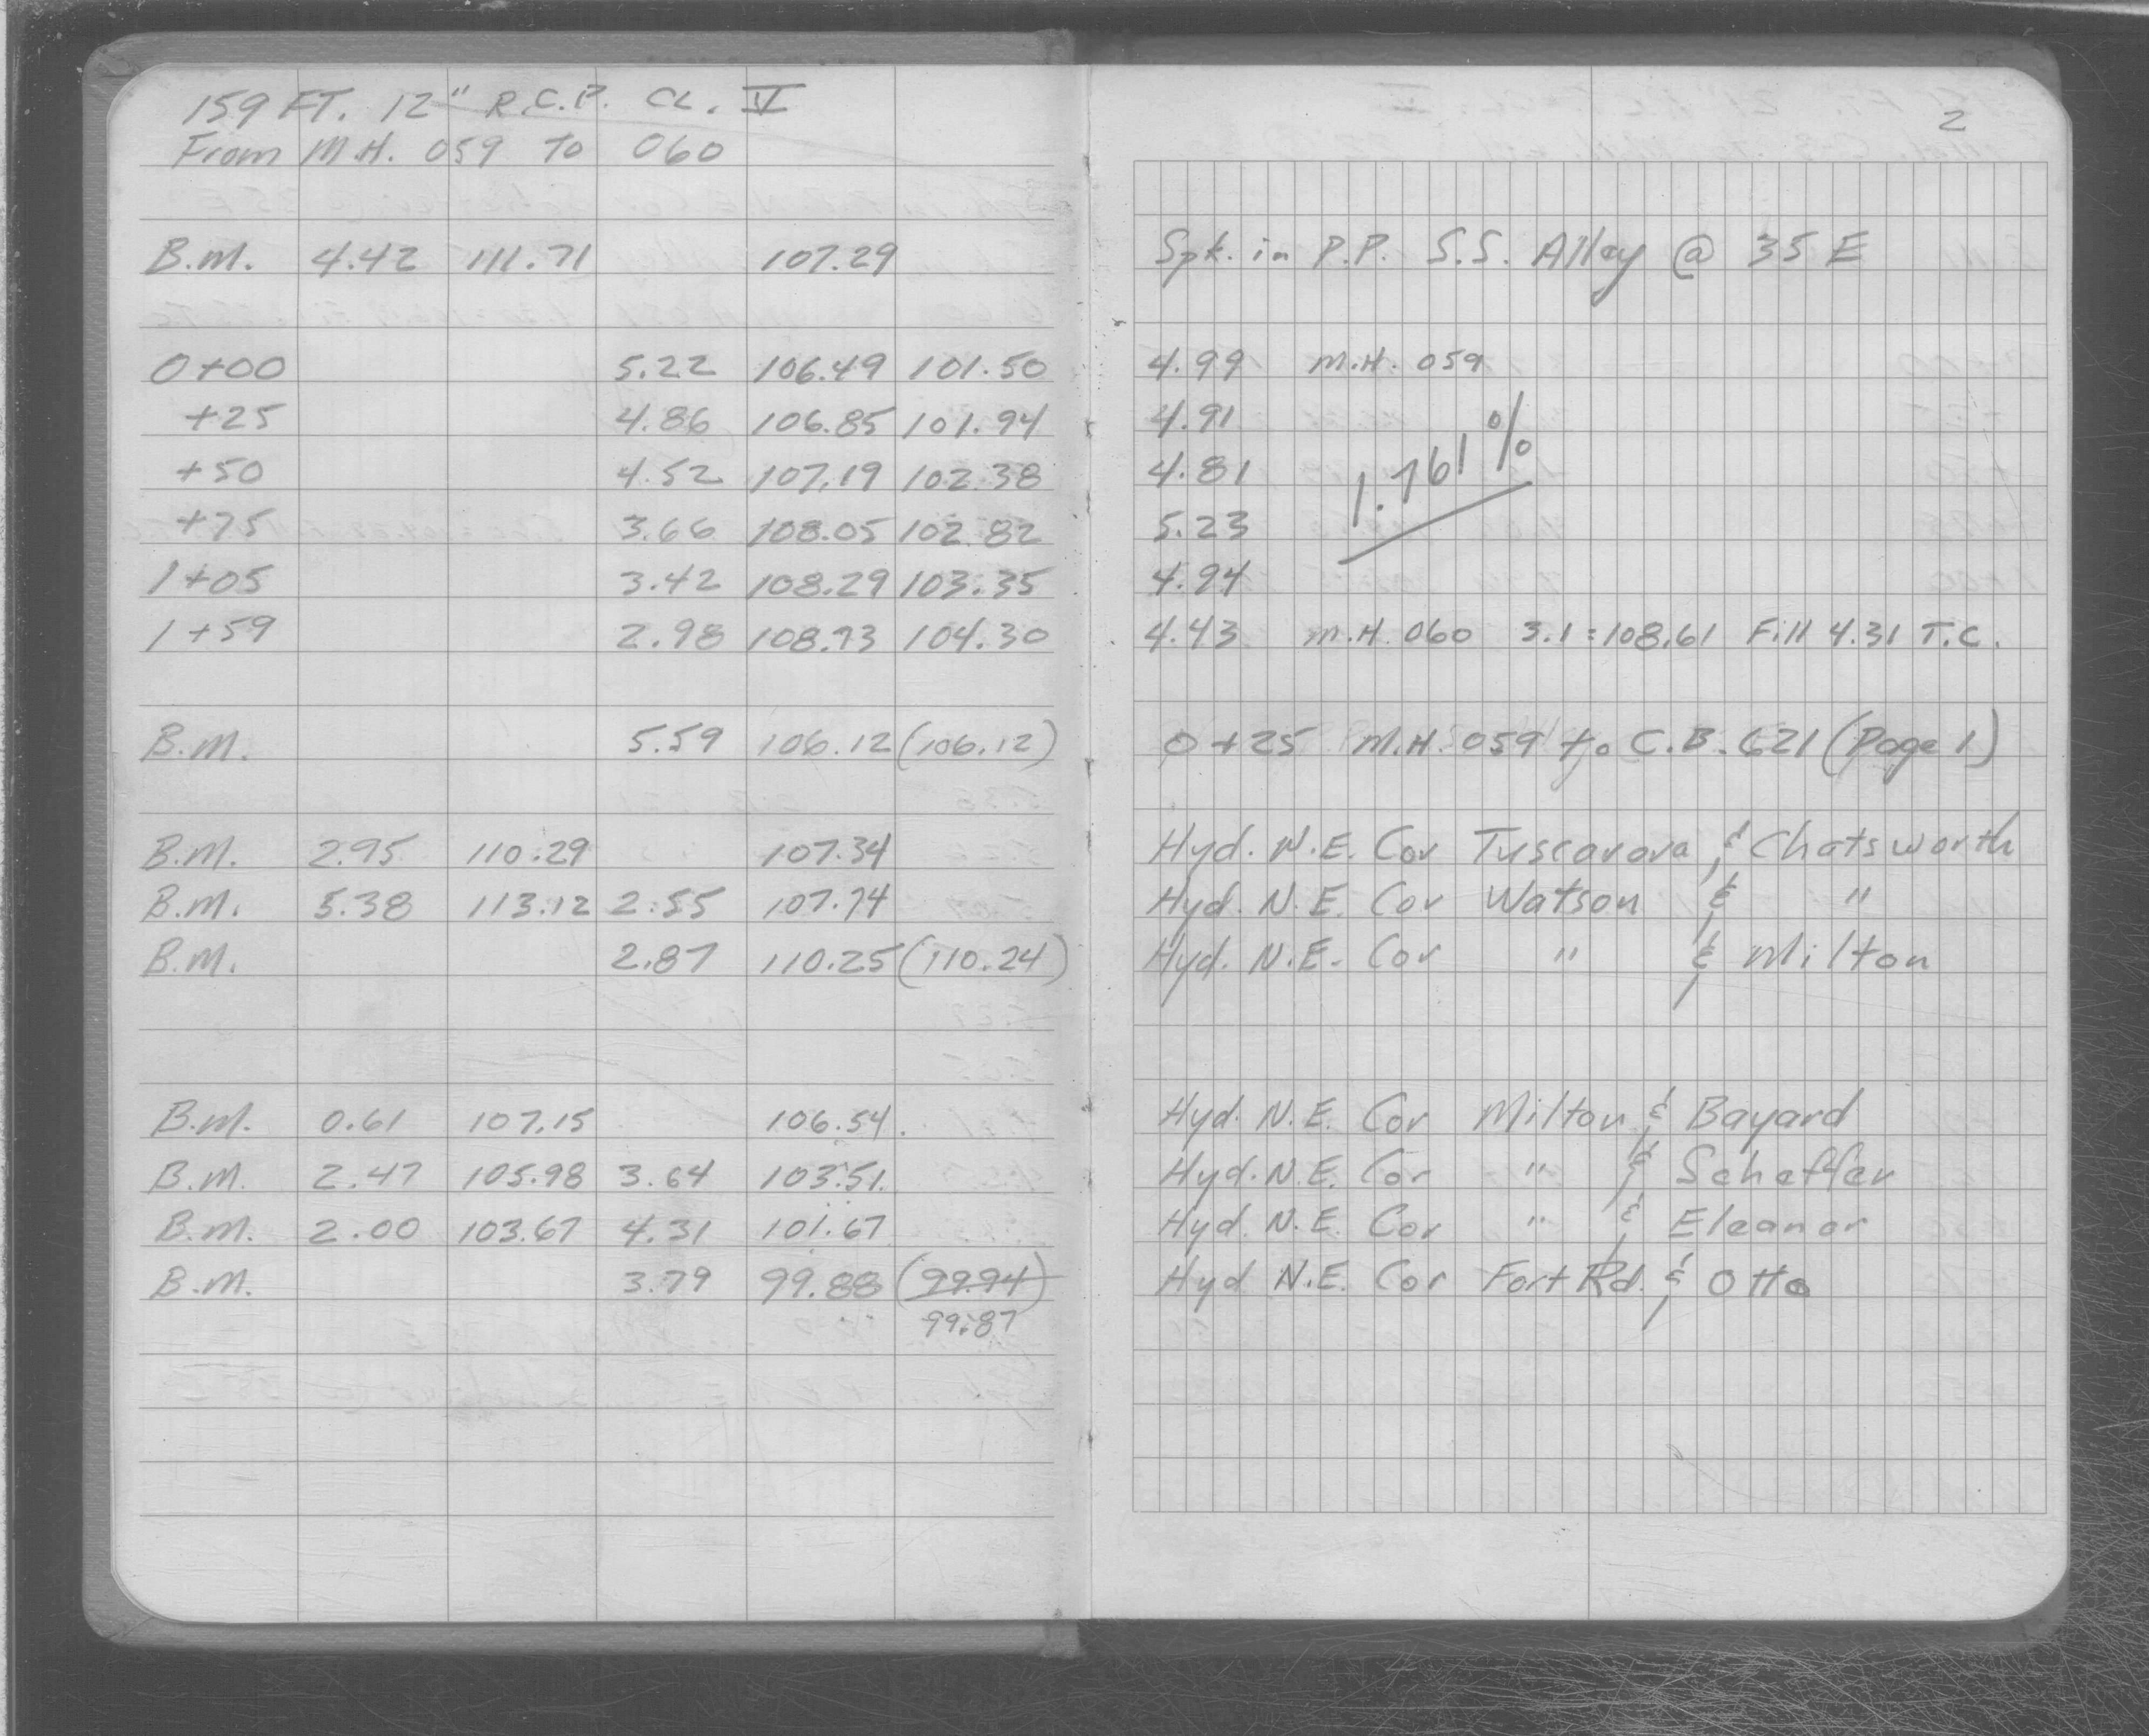 159 FT. 12" R.C.P. CL. V
From M.H. 059 To 060
B.M. 4.42 111.71 107.29
0+00 5.22 106.49 101.50
+25 4.86 106.85 101.94
+50 4.52 107.19 102.38
+75 3.66 108.05 102.82
1+05 3.42 108.29 103.35
1+59 2.98 108.73 104.30
B.M. 5.59 106.12 (106.12)
B.M. 2.95 110.29 107.34
B.M. 5.38 113.12 2.55 107.74
B.M. 2.87 110.25 (110.24)
B.M. 0.61 107.15 106.54
B.M. 2.47 105.98 3.64 103.51
B.M. 2.00 103.67 4.31 101.67
B.M. 3.79 99.88 (99.94)
99.87
2
Spk. in P.P. S.S. Alley @ 35 E
4.99 M.H. 059
4.91
4.81 1.761%
5.23
4.94
4.43 M.H. 060 3.1 = 108.61 Fill 4.31 T.C.
0+25 M.H. 059 to C.B. 621 (Page 1)
Hyd. N.E. Cor Tuscarora & Chatsworth
Hyd. N.E. Cor Watson & "
Hyd. N.E. Cor " & Milton
Hyd. N.E. Cor Milton & Bayard
Hyd. N.E. Cor " & Scheffer
Hyd. N.E. Cor " & Eleanor
Hyd N.E. Cor Fort Rd. & Otto